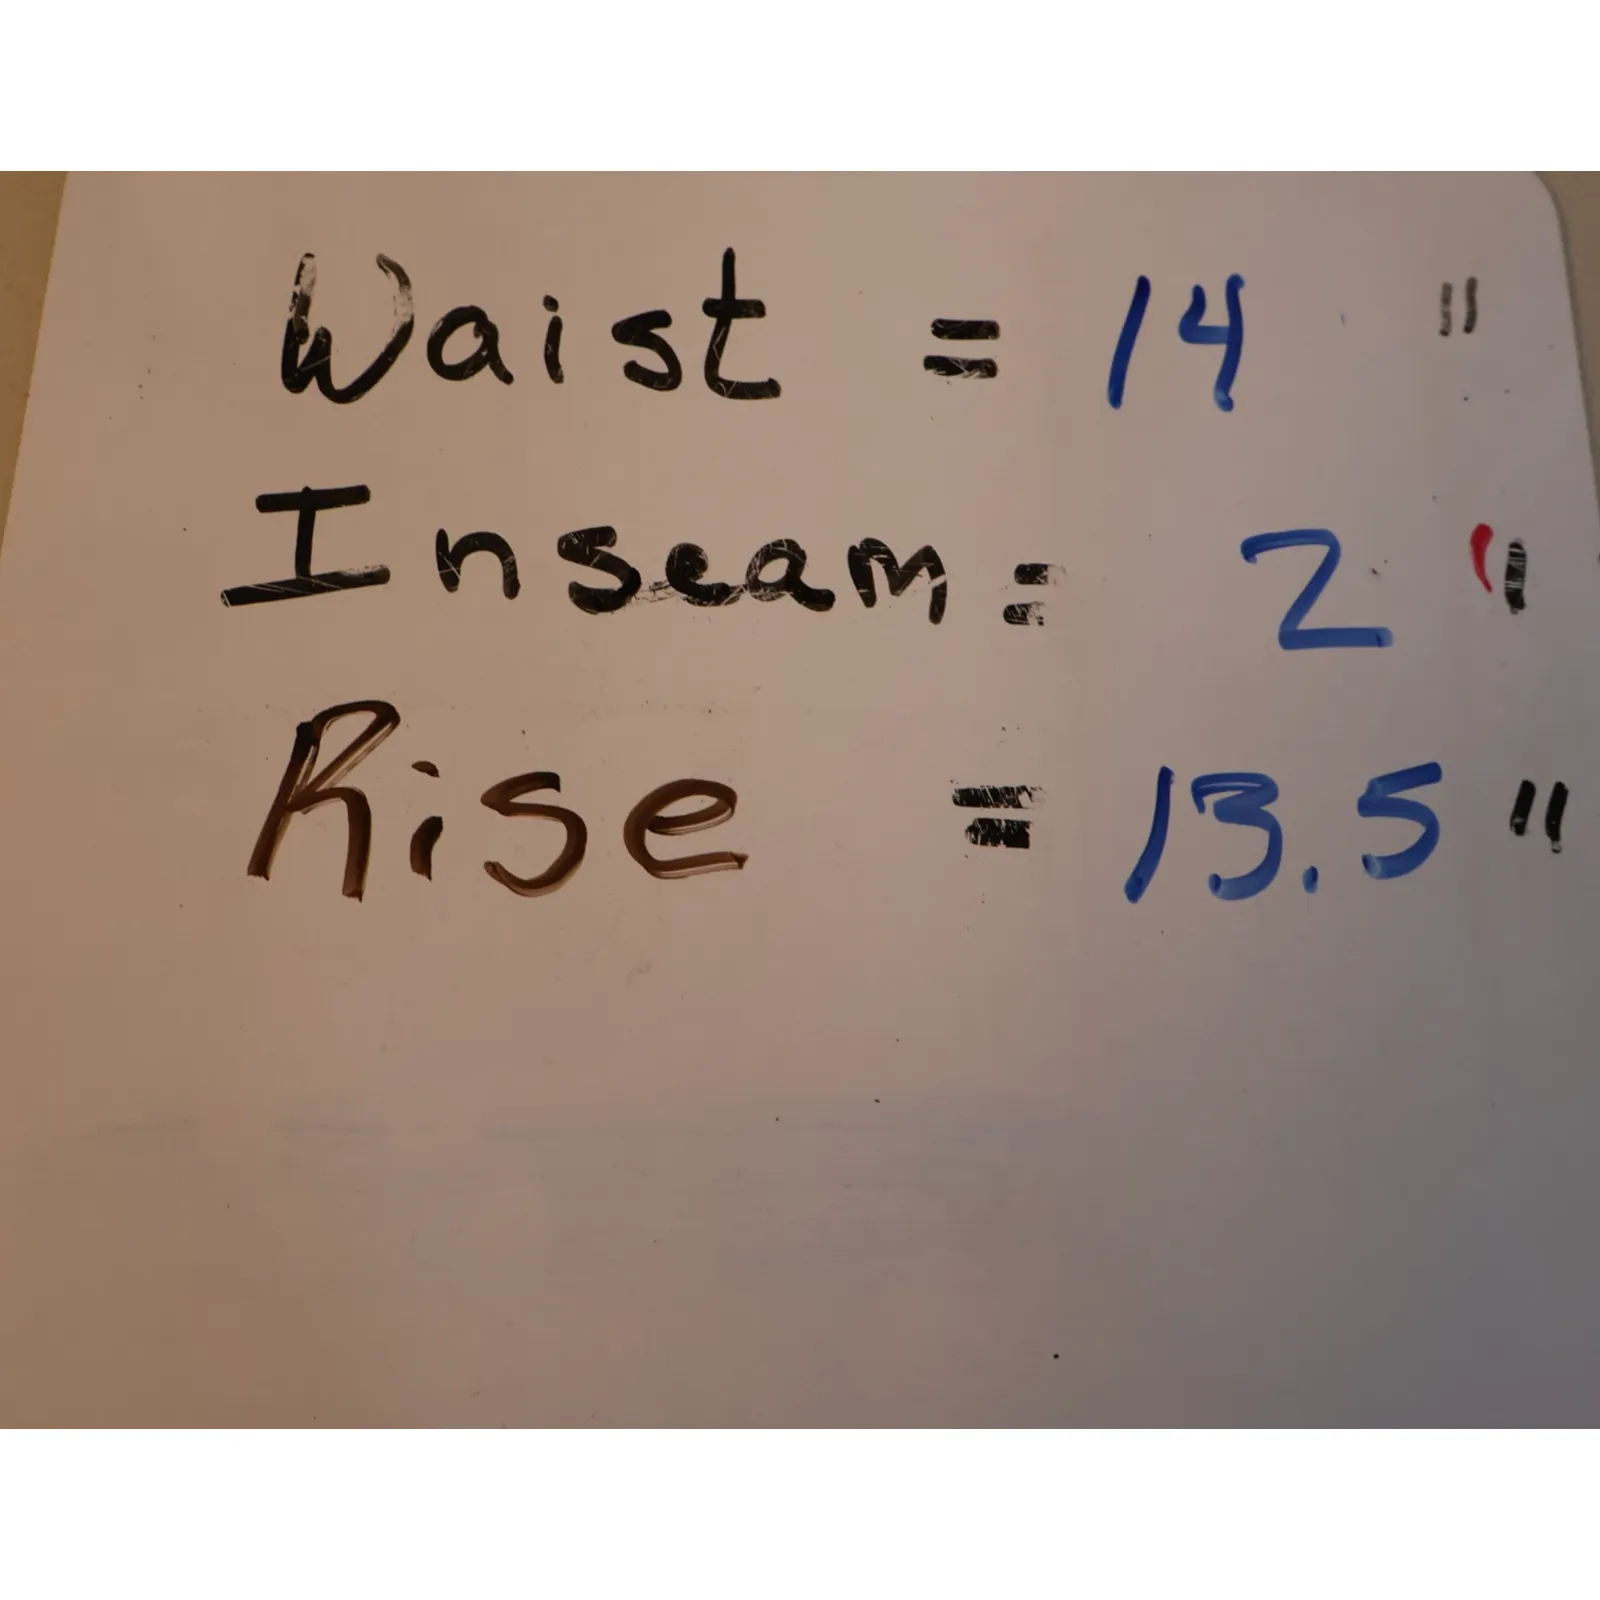 Waist = 14 "
Inseam = 2 "
Rise = 13.5 "